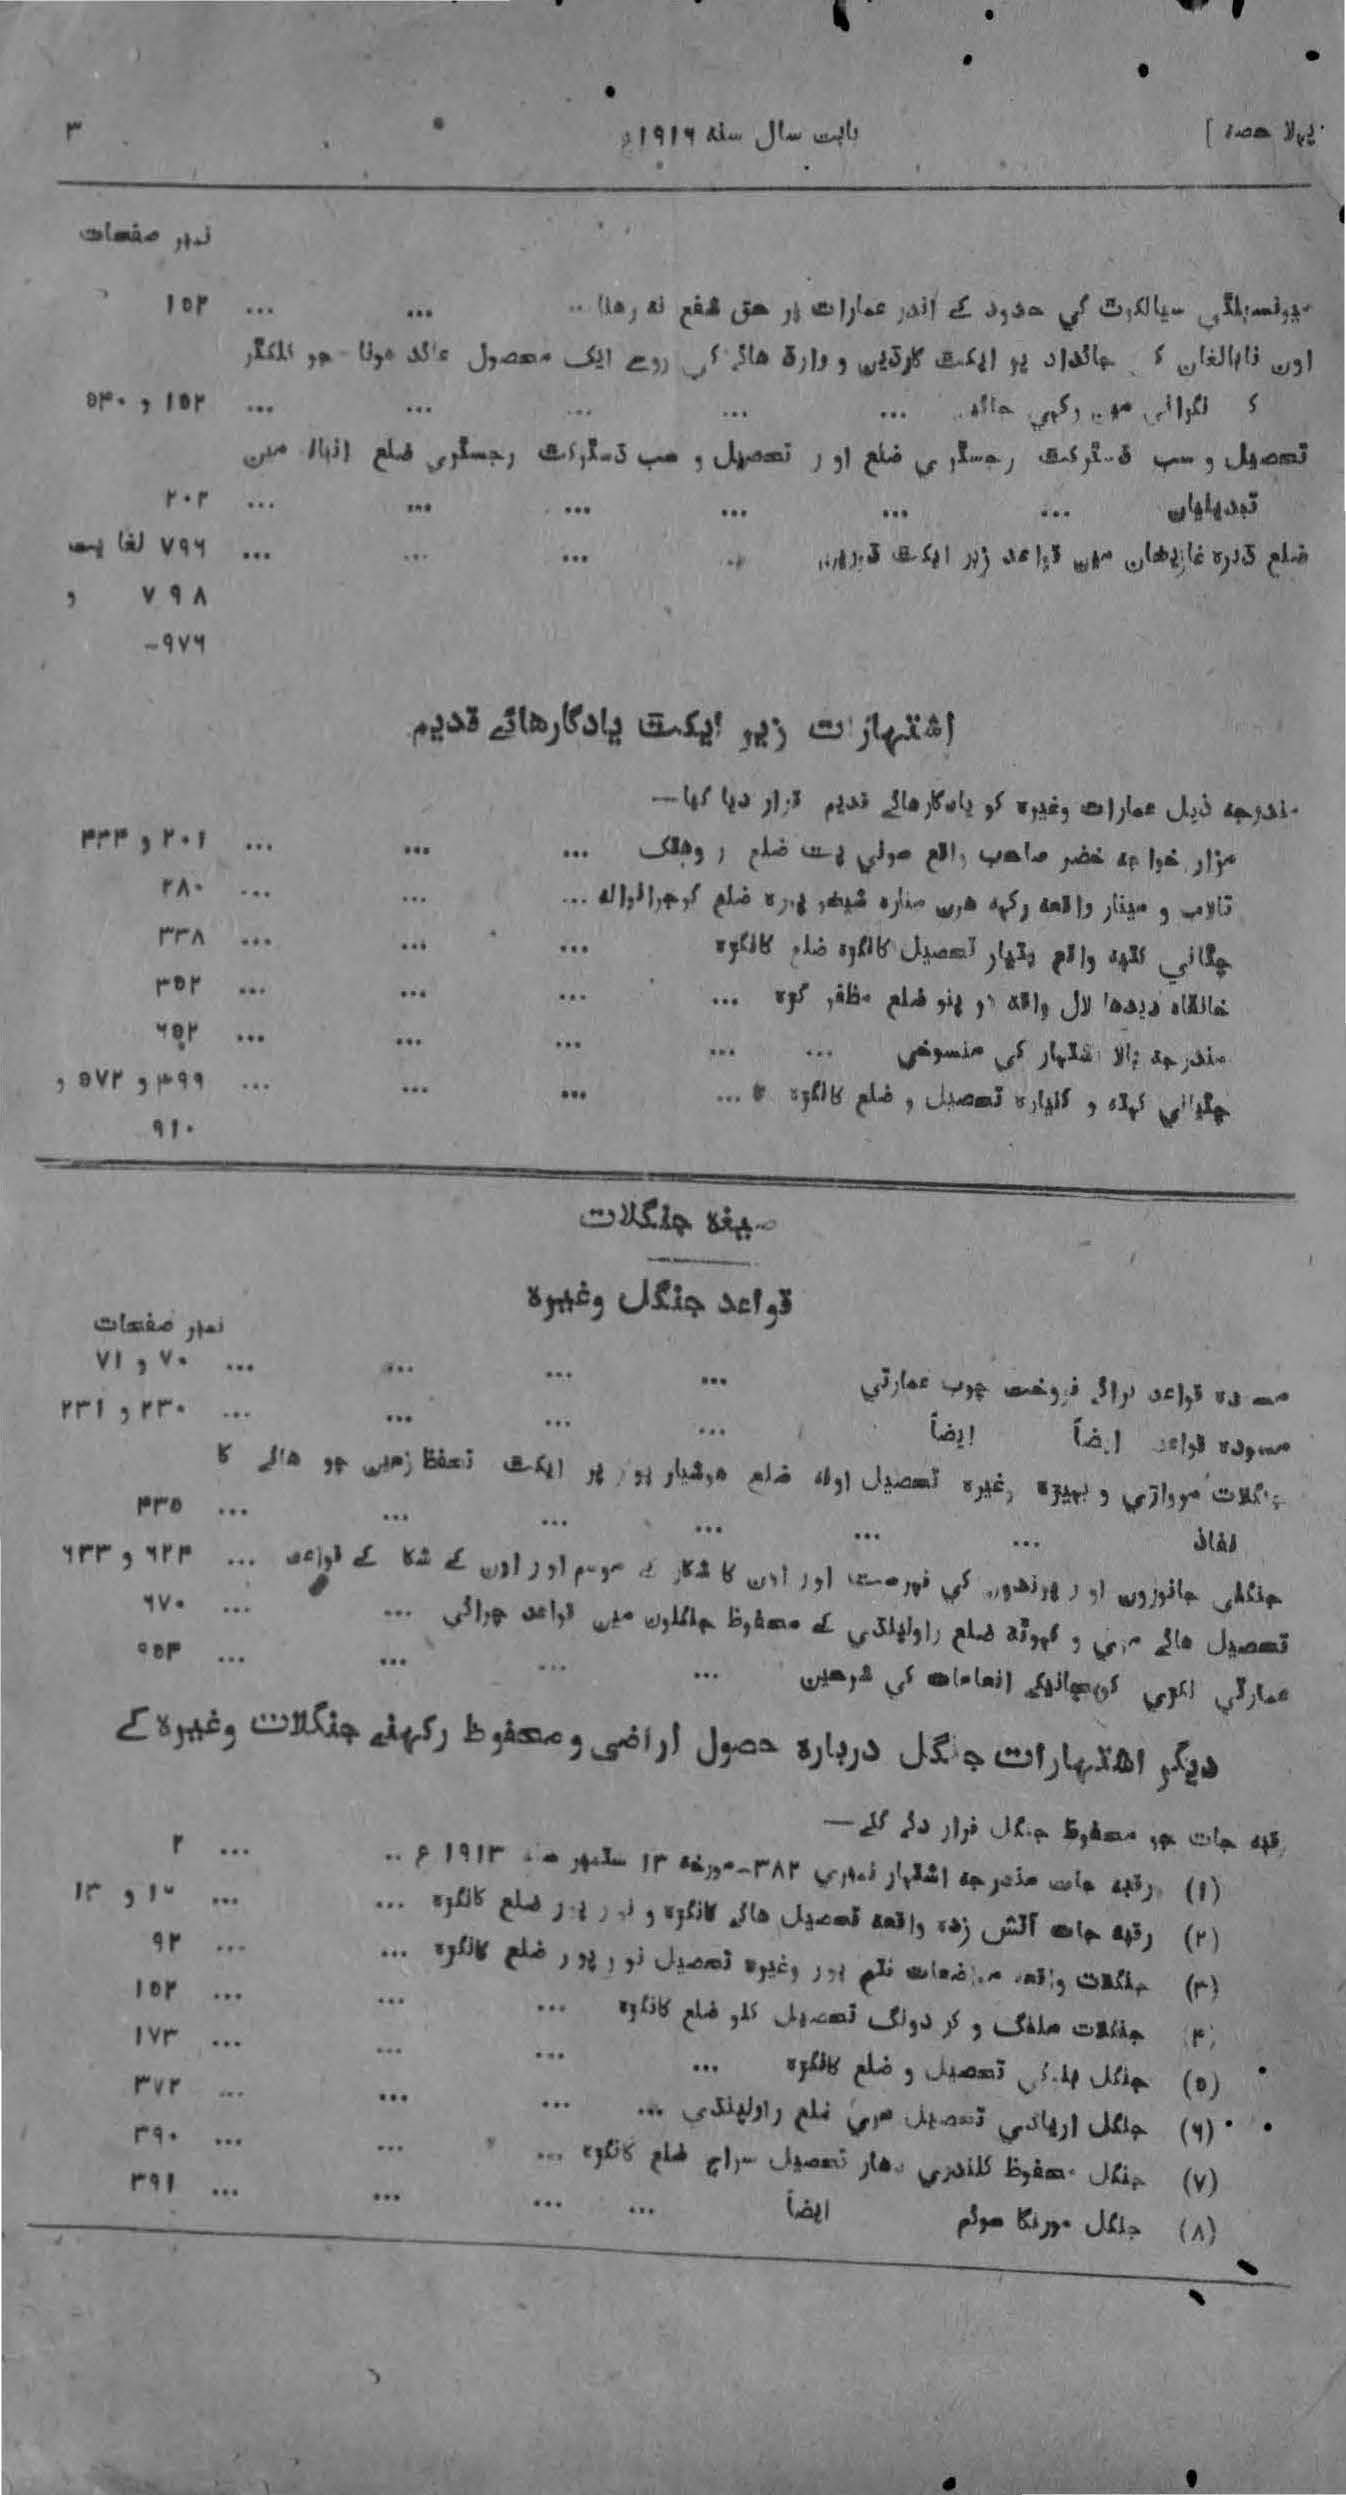 پہلا حصہ ] بابت سال سنہ ۱۹۱۶ء ۳
نمبر صفحات
میونسپلٹی سیالکوٹ کی حدود کے اندر عمارات پر حق شفع نہ رہنا ... ... ... ۱۵۲
اون نابالغان کی جائداد پر ایکٹ گارڈین و وارڈ ہائے کی روسے ایک محصول عائد ہونا - جو کلکٹر
کی نگرانی میں رکھی جائے ... ... ... ... ... ۱۵۲ و ۵۴۰
تحصیل و سب ڈسٹرکٹ رجسٹری ضلع اور تحصیل و سب ڈسٹرکٹ رجسٹری ضلع انبالہ میں
تبدیلیاں ... ... ... ... ... ... ۲۰۲
ضلع ڈیرہ غازیخان میں قواعد زیر ایکٹ ... ... ... ... ۷۹۶ لغایت
۷۹۸ و
۹۷۶-
اشتہارات زیر ایکٹ یادگارہائے قدیم
مندرجہ ذیل عمارات وغیرہ کو یادگارہائے قدیم قرار دیا گیا—
مزار خواجہ خضر صاحب واقع سونی پت ضلع روہتک ... ... ... ۲۰۱ و ۴۳۴
تالاب و مینار واقعہ رکھ ہرن منارہ شیخو پورہ ضلع گوجرانوالہ ... ... ... ۲۸۰
چٹانی کتبہ واقع پتھیار تحصیل کانگڑہ ضلع کانگڑہ ... ... ... ۳۳۸
خانقاہ دیدھا لال واقعہ پنو ضلع مظفر گڑہ ... ... ... ... ۳۵۲
مندرجہ بالا اشتہار کی منسوخی ... ... ... ... ... ۶۵۲
چٹانی کتبہ و کنیارہ تحصیل و ضلع کانگڑہ ... ... ... ... ۴۹۹ و ۵۷۲ و
۹۱۰
صیغہ جنگلات
قواعد جنگل وغیرہ
نمبر صفحات
مسودہ قواعد برائے فروخت چوب عمارتی ... ... ... ... ۷۰ و ۷۱
مسودہ قواعد ایضاً ایضاً ... ... ... ... ۲۳۰ و ۲۳۱
جنگلات مروارڑی و بہیڑہ وغیرہ تحصیل اونہ ضلع ہوشیار پور پر ایکٹ تحفظ زمین چو ہائے کا
نفاذ ... ... ... ... ... ... ۴۳۵
جنگلی جانوروں اور پرندوں کی فہرست اور اون کا شکار کے موسم اور اون کے شکار کے قواعد ... ۶۲۴ و ۶۳۳
تحصیل ہائے مری و کہوٹہ ضلع راولپنڈی کے محفوظ جنگلوں میں قواعد چرائی ... ... ۶۷۰
عمارتی لکڑی کے بچانیکے انعامات کی شرحیں ... ... ... ... ۹۵۴
دیگر اشتہارات جنگل دربارہ حصول اراضی و محفوظ رکھنے جنگلات وغیرہ کے
رقبہ جات جو محفوظ جنگل قرار دئے گئے—
(۱) رقبہ جات مندرجہ اشتہار نمبری ۳۸۲-مورخہ ۱۳ ستمبر سنہ ۱۹۱۳ ع .. ... ۲
(۲) رقبہ جات آتش زدہ واقعہ تحصیل ہائے کانگڑہ و نور پور ضلع کانگڑہ ... ... ۱۰ و ۱۳
(۳) جنگلات واقعہ مواضعات فتح پور وغیرہ تحصیل نور پور ضلع کانگڑہ ... ... ۹۲
(۴) جنگلات ملنگ و کر دونگ تحصیل کلو ضلع کانگڑہ ... ... ... ۱۵۲
(۵) جنگل تحصیل و ضلع کانگڑہ ... ... ... ... ۱۷۳
(۶) جنگل اریاڑی تحصیل مری ضلع راولپنڈی ... ... ... ... ۳۷۲
(۷) جنگل محفوظ کلندری دھار تحصیل سراج ضلع کانگڑہ ... ... ... ۳۹۰
(۸) جنگل مورنگا سوئم ایضاً ... ... ... ... ۳۹۱